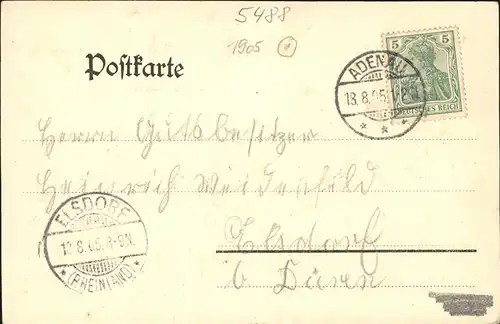 5488
1905 1
Postkarte
5 5
DEUTSCHES REICH
ADENAU
18.8.05. 8N.
Herrn Gutsbesitzer
Heinrich Weidenfeld
Elsdorf
b Düren
ELSDORF
8-9N.
* (RHEINLAND) *